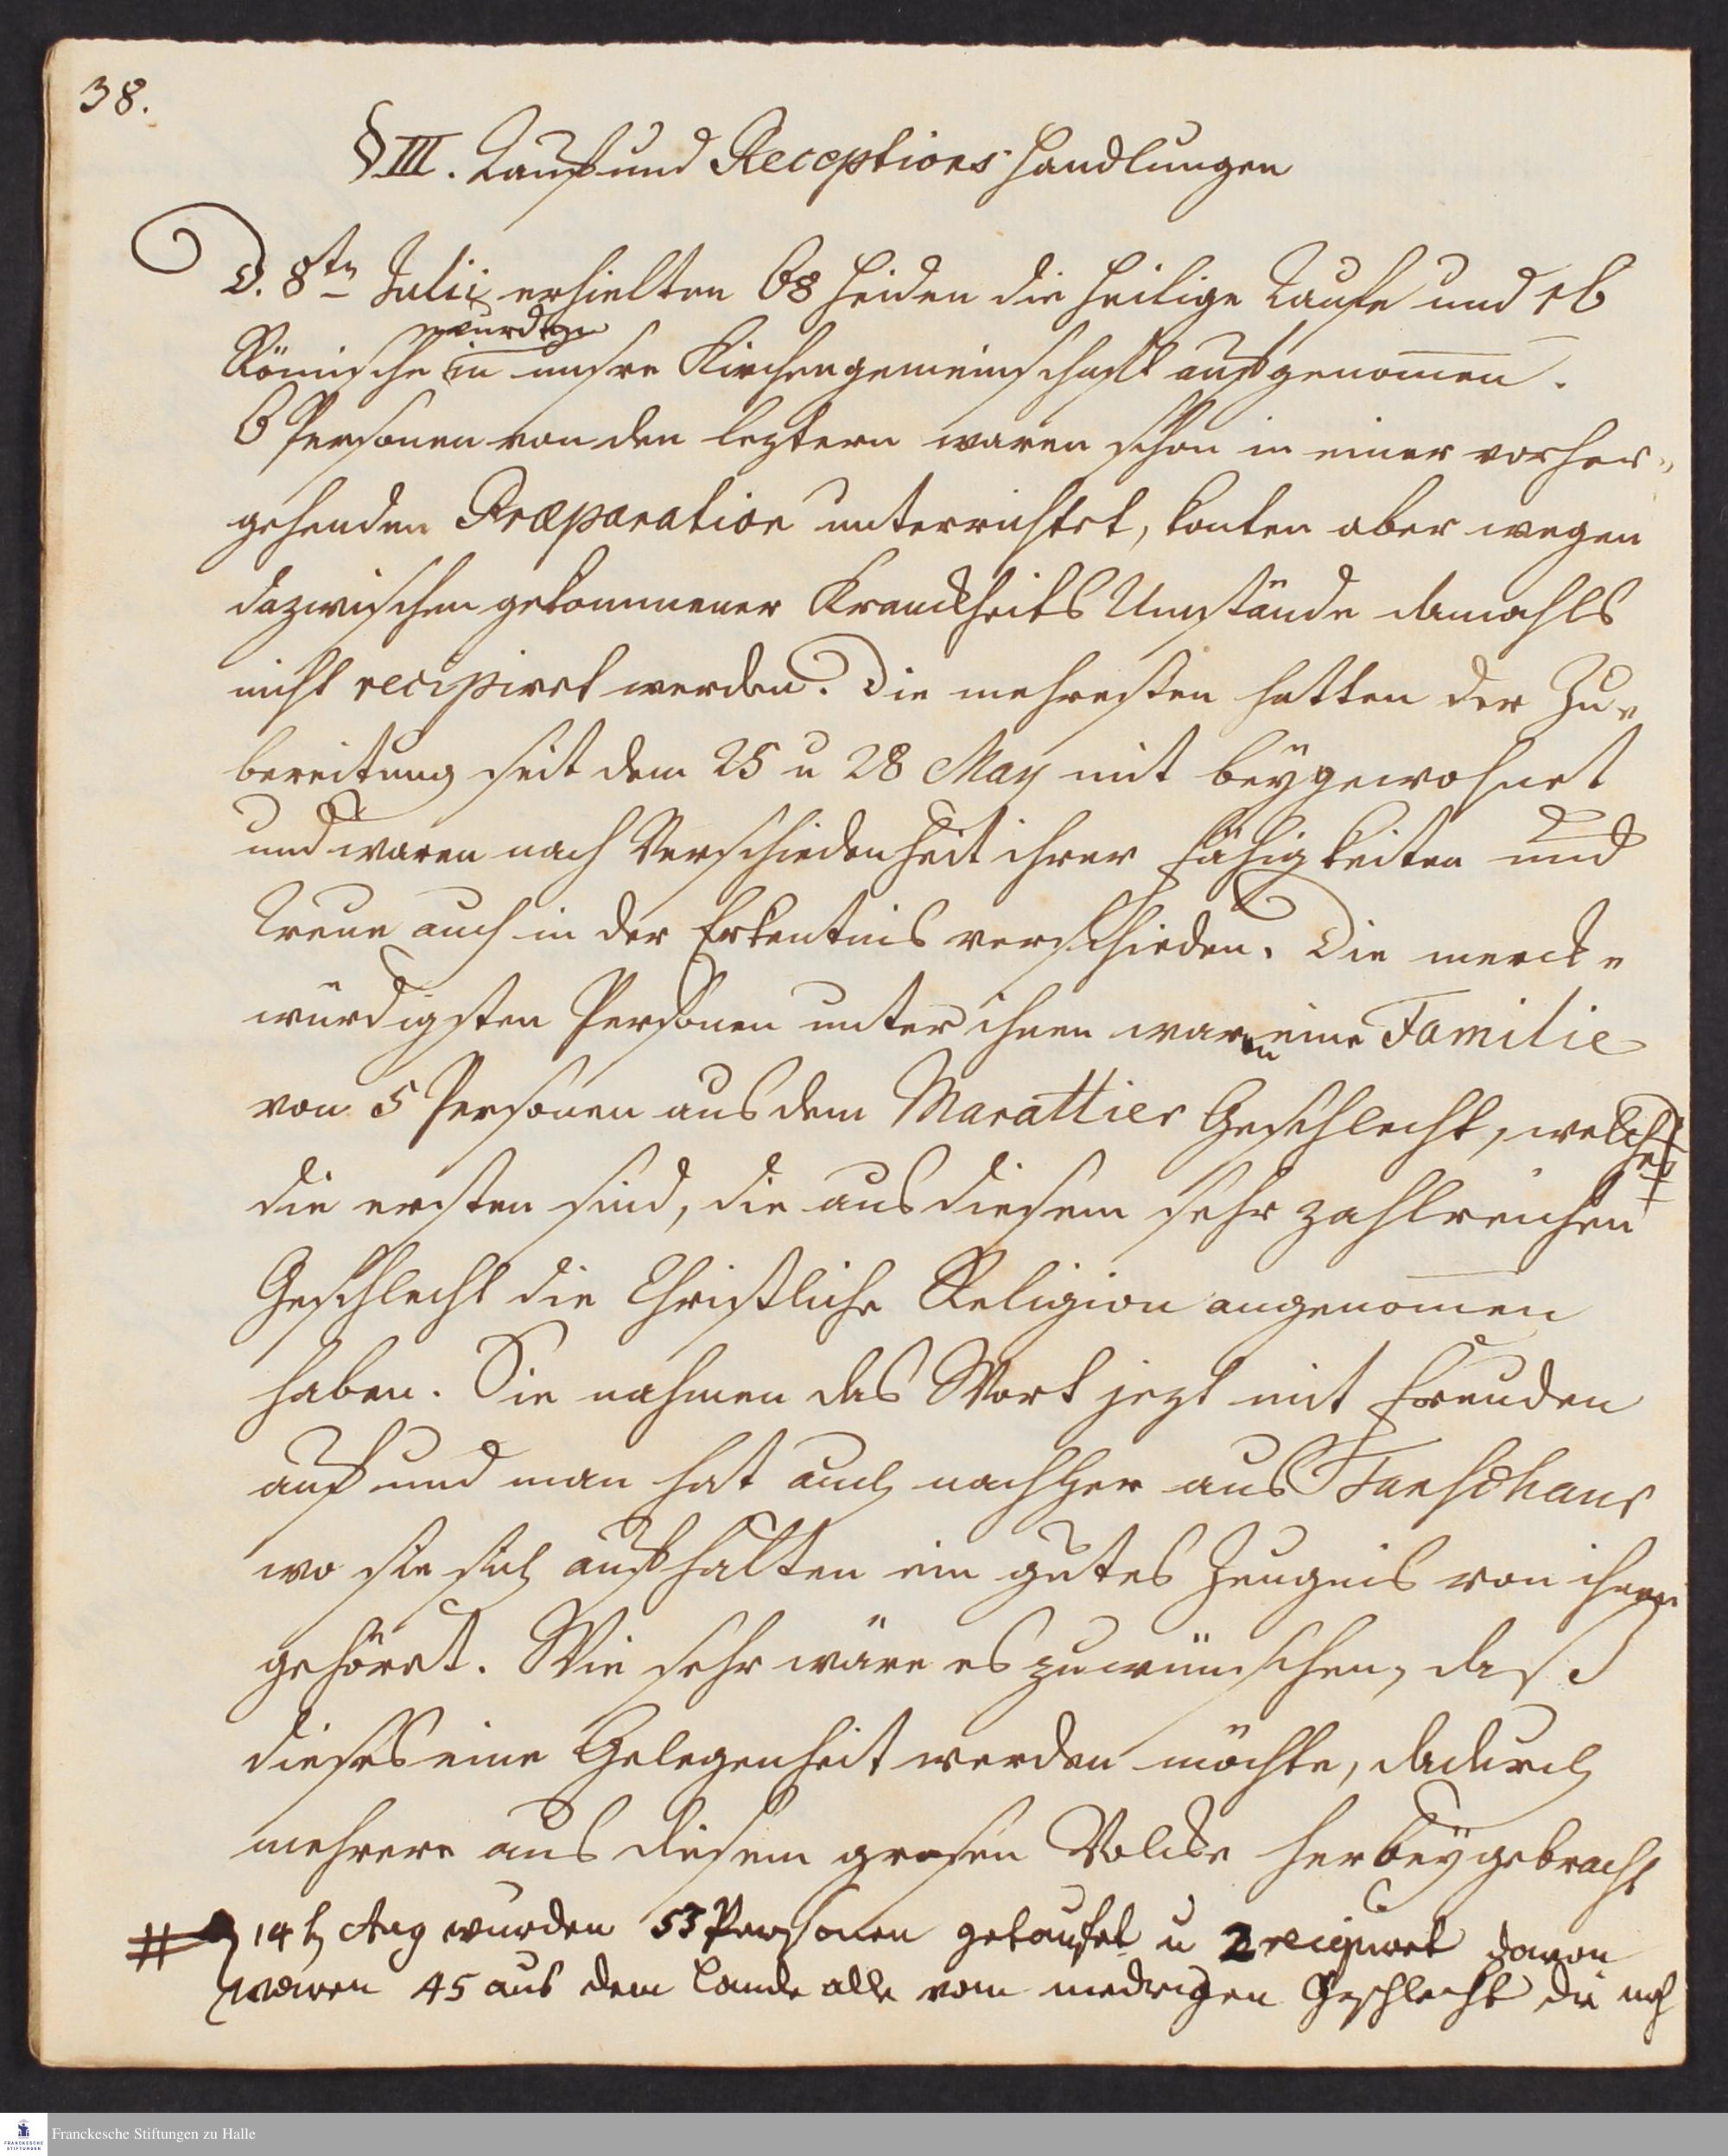 38.
§ III. Tauf und Receptions Handlungen
D. 8ten Julii erhielten 68 Heiden die heilige Taufe und 16
wurden
Römische in unsre Kirchengemeinschaft aufgenom̅en.
6 Personen von den leztern waren schon in einer vorher„
gehenden Præparation unterrichtet, konten aber wegen
dazwischen gekommener Kranckheits Umstände damahls
nicht recipiret werden. Die mehresten hatten der Zu„
bereitung seit dem 25 u 28 May mit beygewohnet
und waren nach Verschiedenheit ihrer Fähigkeiten und
Treue auch in der Erkentnis verschieden. Die merck„
würdigsten Personen unter ihnen waren eine Familie
von 5 Personen aus dem Marattier Geschlecht, welche #
die ersten sind, die aus diesem sehr zahlreichen
Geschlecht die Christliche Religion angenom̅en
haben. Sie nahmen das Wort jezt mit Freuden
auf und man hat auch nachher aus Tanschaur
wo sie sich aufhalten ein gutes Zeugnis von ihnen
gehöret. Wie sehr wäre es zu wünschen, daß
dieses eine Gelegenheit werden möchte, dadurch
mehrere aus diesem grosen Volcke herbeygebracht
# D 14t Aug wurden 53 Personen getaufet u 2 recipiret davon
waren 45 aus dem Lande alle vom niedrigen Geschlecht die nach
Franckesche Stiftungen zu Halle
FRANCKESCHE
STIFTUNGEN